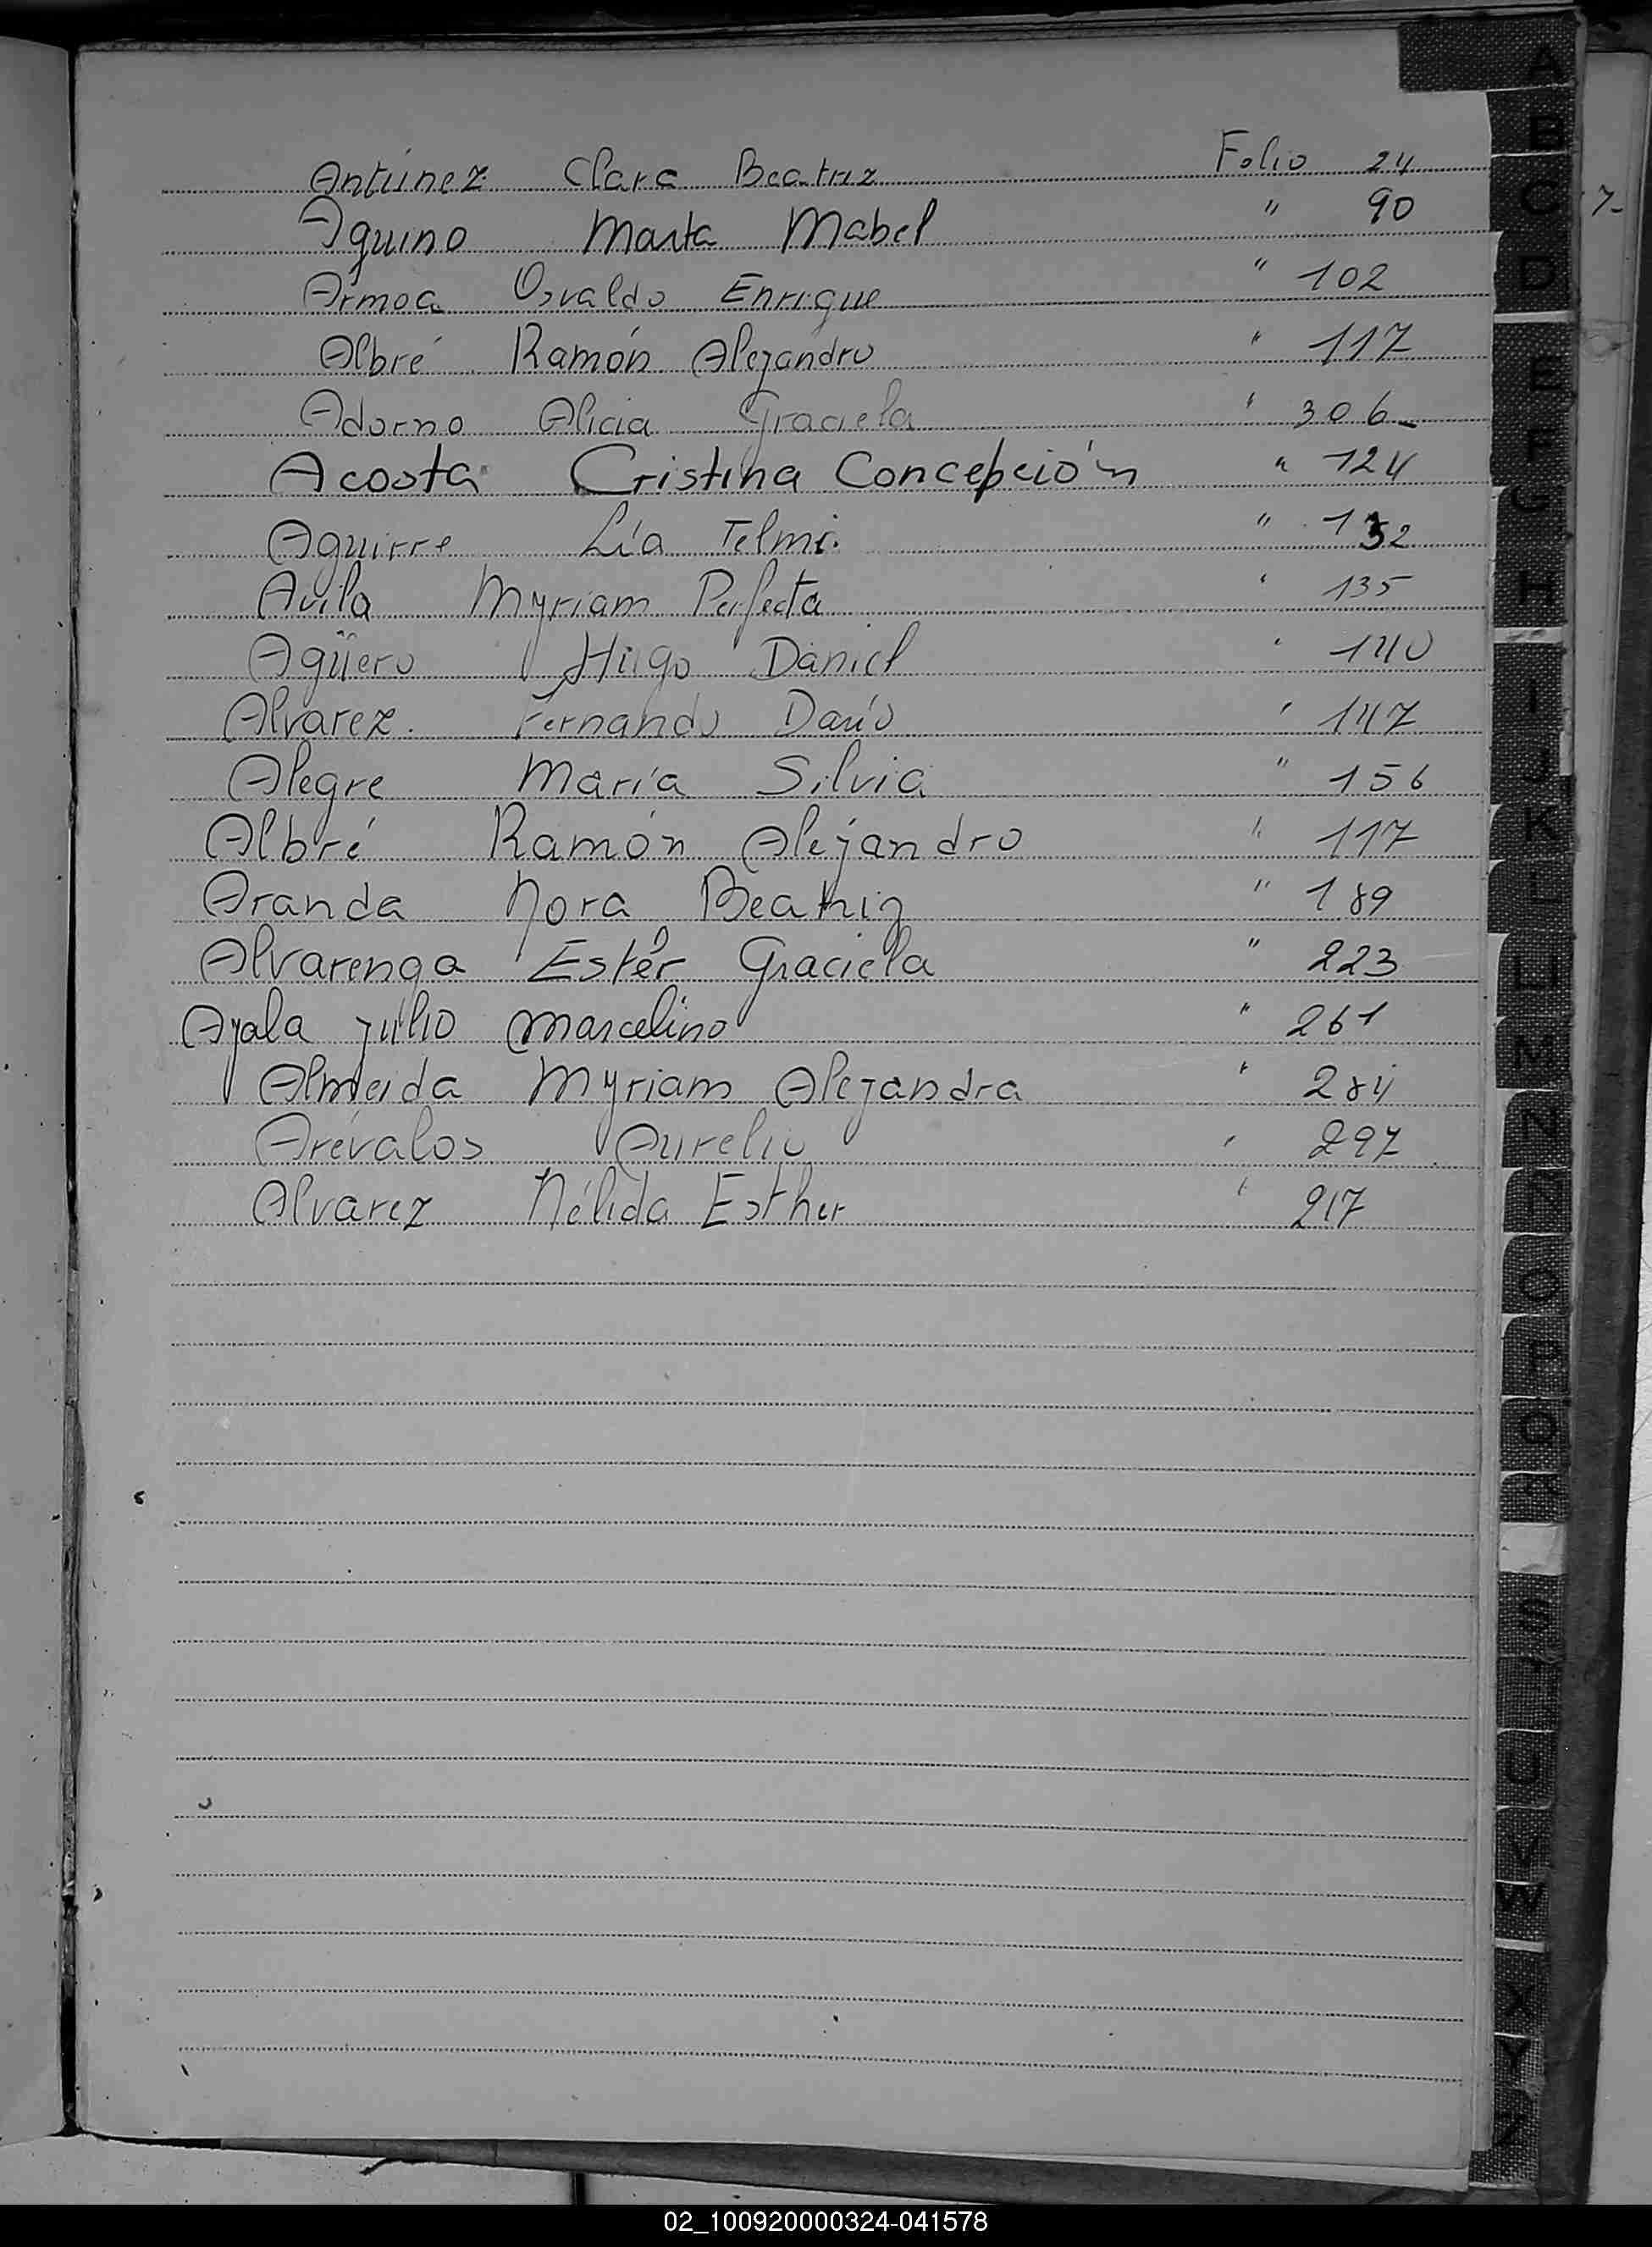 Antúnez Clara Beatriz Folio 24
Aquino Marta Mabel " 90
Armoa Osvaldo Enrique " 102
Albré Ramón Alejandro " 117
Adorno Alicia Graciela " 306-
Acosta Cristina Concepción " 124
Aguirre Lía Telmi. " 132
Avila Myriam Perfecta " 135
Agüero Hugo Daniel " 140
Alvarez. Fernando Darío " 147
Alegre María Silvia " 156
Albré Ramón Alejandro " 117
Aranda Nora Beatriz " 189
Alvarenga Estér Graciela " 223
Ayala Julio Marcelino " 261
Almeida Myriam Alejandra " 284
Arévalos Aurelio " 297
Alvarez Nélida Esther " 217
A
B
C
D
E
F
G
H
I
J
K
L
LL
M
N
Ñ
O
P
Q
R
S
T
U
V
W
X
Y
Z
7-
02_100920000324-041578